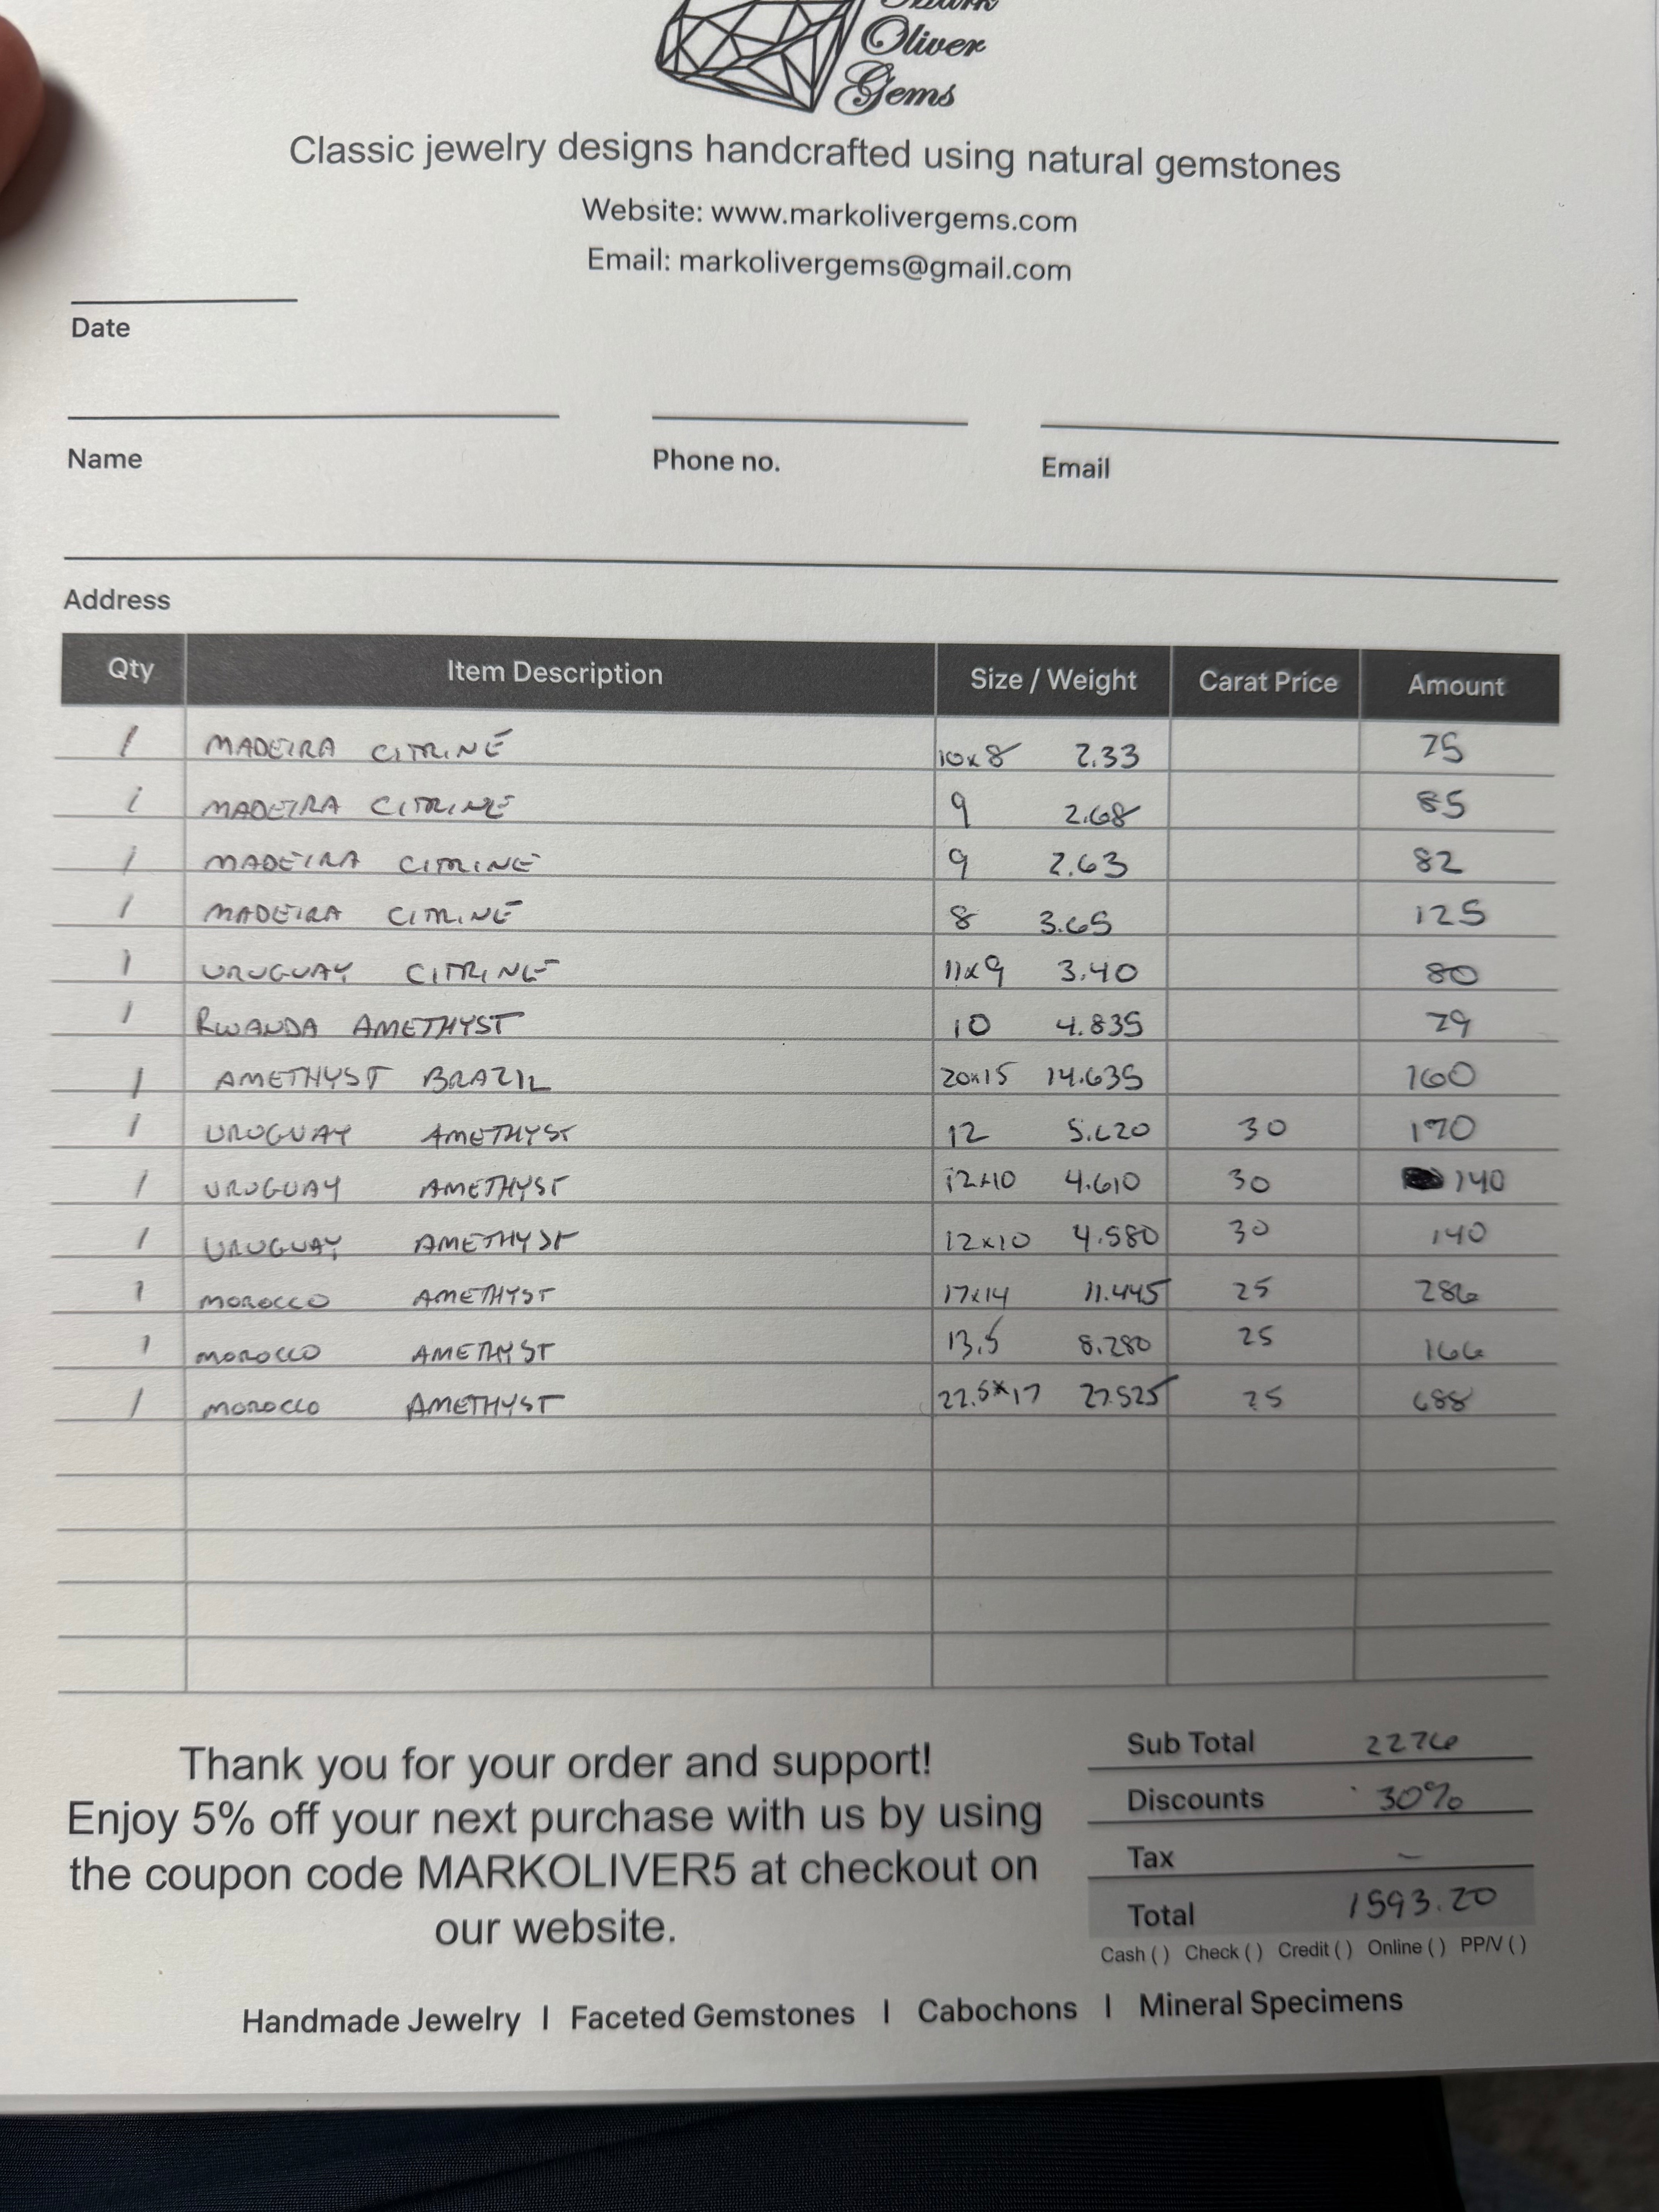 Mark
Oliver
Gems
Classic jewelry designs handcrafted using natural gemstones
Website: www.markolivergems.com
Email: markolivergems@gmail.com
Date
Name Phone no. Email
Address
Qty Item Description Size / Weight Carat Price Amount
1 MADEIRA CITRINE 10x8 2.33 75
1 MADEIRA CITRINE 9 2.68 85
1 MADEIRA CITRINE 9 2.63 82
1 MADEIRA CITRINE 8 3.65 125
1 URUGUAY CITRINE 11x9 3.40 80
1 RWANDA AMETHYST 10 4.835 79
1 AMETHYST BRAZIL 20x15 14.635 160
1 URUGUAY AMETHYST 12 5.620 30 170
1 URUGUAY AMETHYST 12x10 4.610 30 140
1 URUGUAY AMETHYST 12x10 4.580 30 140
1 MOROCCO AMETHYST 17x14 11.445 25 286
1 MOROCCO AMETHYST 13.5 8.280 25 166
1 MOROCCO AMETHYST 22.5x17 27.525 25 688
Thank you for your order and support!
Enjoy 5% off your next purchase with us by using
the coupon code MARKOLIVER5 at checkout on
our website.
Sub Total 2276
Discounts 30%
Tax –
Total 1593.20
Cash ( ) Check ( ) Credit ( ) Online ( ) PP/V ( )
Handmade Jewelry | Faceted Gemstones | Cabochons | Mineral Specimens